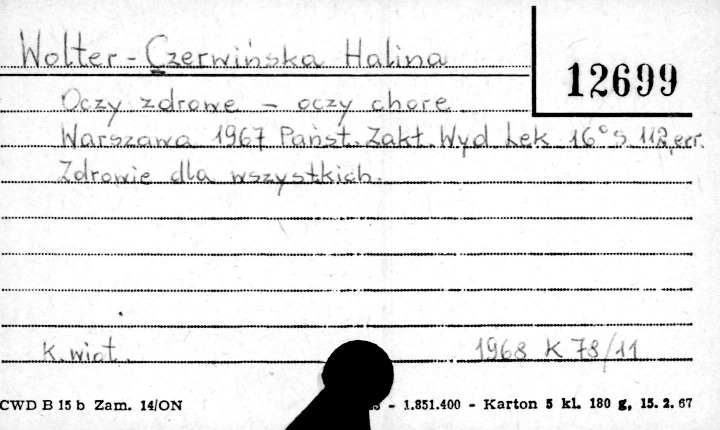 Wolter-Czerwińska Halina
12699
Oczy zdrowe - oczy chore
Warszawa 1967 Państ. Zakt. Wyd Lek 16° s. 112, err.
Zdrowie dla wszystkich.
K. wiat. 1968 K 78/11
CWD B 15 b Zam. 14/ON - 1.851.400 - Karton 5 kl. 180 g, 15. 2. 67